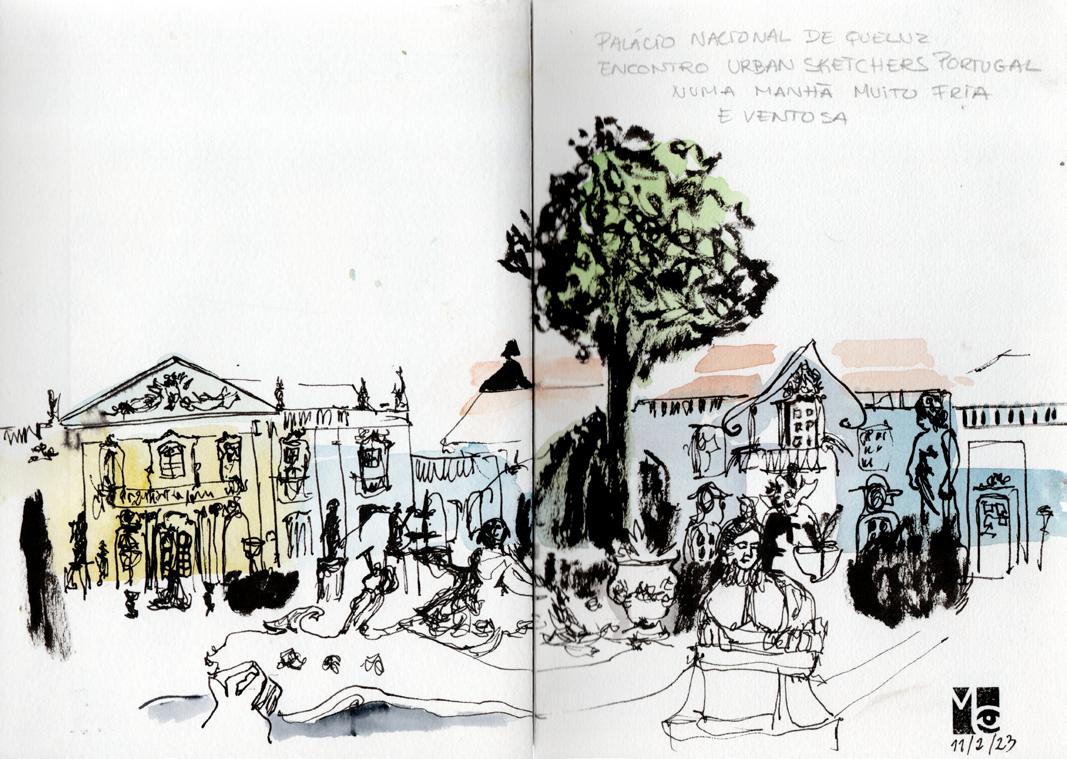 PALÁCIO NACIONAL DE QUELUZ
ENCONTRO URBAN SKETCHERS PORTUGAL
NUMA MANHÃ MUITO FRIA
E VENTOSA
11/2/23